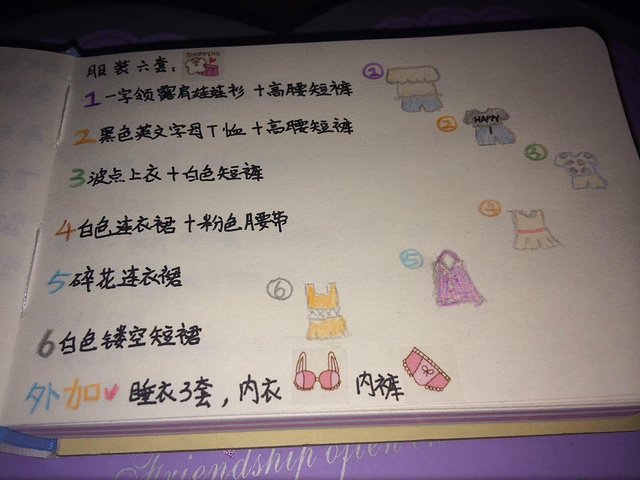 服装六套：SHOPPING
1 一字领露肩娃娃衫＋高腰短裤 ①
2 黑色英文字母T恤＋高腰短裤 ② HAPPY
3 波点上衣＋白色短裤 ③
4 白色连衣裙＋粉色腰带 ④
5 碎花连衣裙 ⑤
6 白色镂空短裙 ⑥
外加 睡衣3套，内衣 内裤
Friendship often